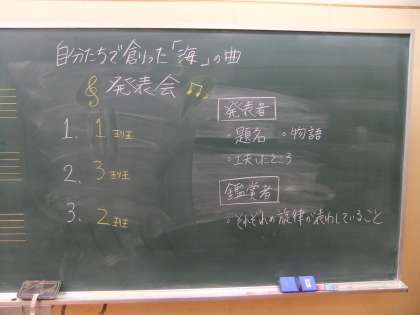 自分たちで創った「海」の曲
発表会
1. 1班
2. 3班
3. 2班
発表者
・題名 ・物語
・工夫したところ
鑑賞者
・それぞれの旋律が表わしていること